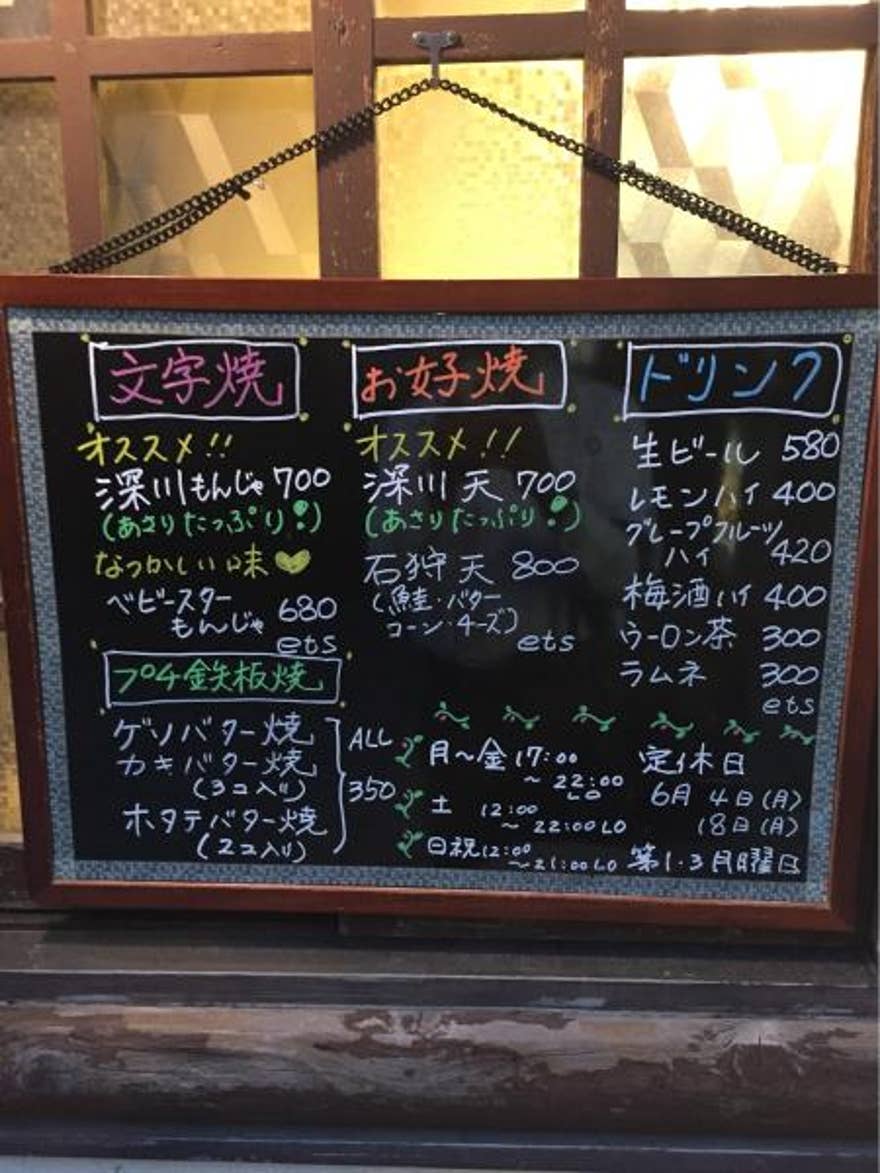 文字焼
オススメ!!
深川もんじゃ 700
(あさりたっぷり!)
なつかしい味
ベビースター
もんじゃ 680
ets
プチ鉄板焼
ゲソバター焼
カキバター焼
(3コ入り)
ホタテバター焼
(2コ入り)
ALL
350
お好焼
オススメ!!
深川天 700
(あさりたっぷり!)
石狩天 800
(鮭・バター
コーン・チーズ)
ets
ドリンク
生ビール 580
レモンハイ 400
グレープフルーツ
ハイ 420
梅酒ハイ 400
ウーロン茶 300
ラムネ 300
ets
月〜金 17:00
〜 22:00
LO
土 12:00
〜 22:00 LO
日祝 12:00
〜21:00 LO
定休日
6月 4日(月)
18日(月)
第1・3月曜日